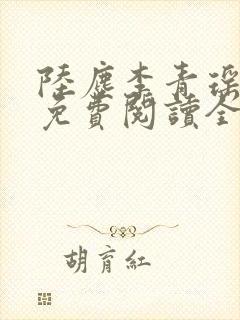 陸塵李青瑶
免費閱讀全
胡育紅